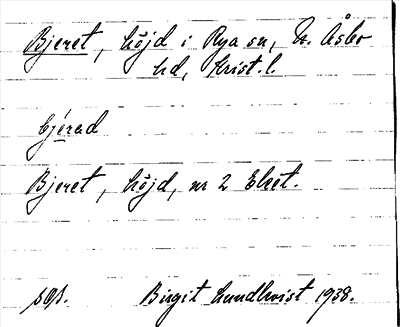 Bjeret, höjd i Rya sn, N. Åsbo
hd, Krist. l.
bjérad
Bjeret, höjd, nr 2 Elset.
sqs.
Birgit Lundkvist 1938.